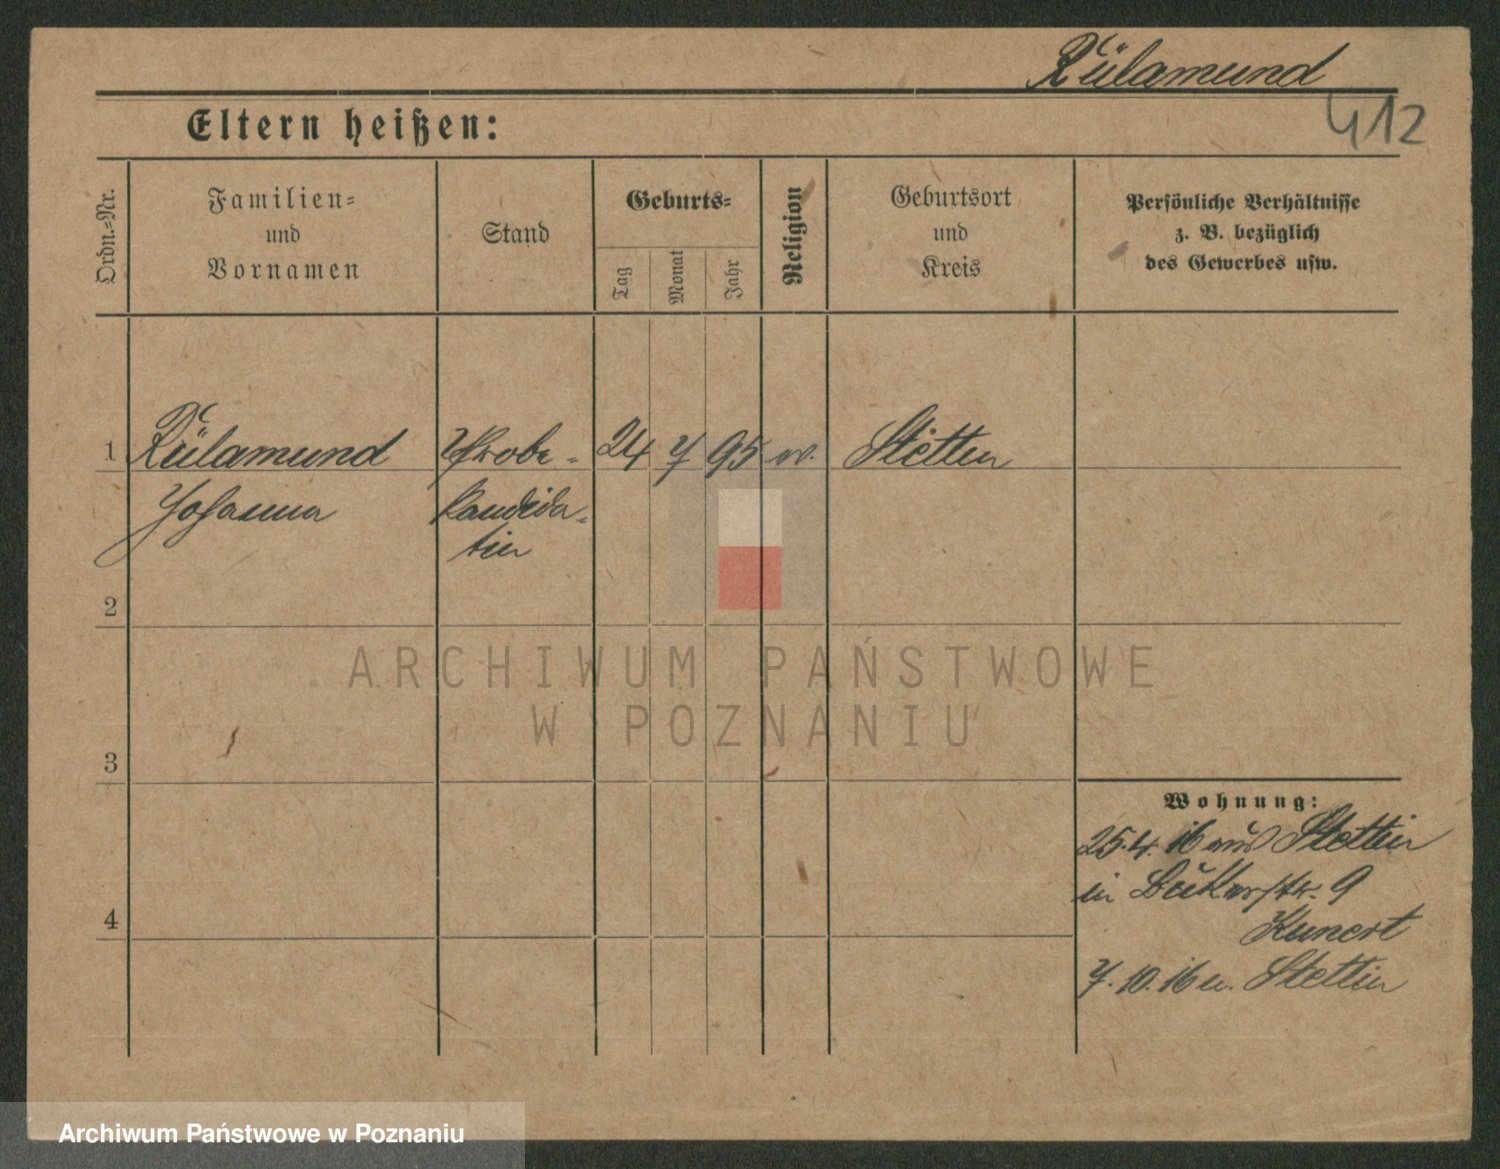 Rülamund
412
Eltern heißen:
Ordn.=Nr.
Familien=
und
Vornamen
Stand
Geburts=
Tag
Monat
Jahr
Religion
Geburtsort
und
Kreis
Persönliche Verhältnisse
z. B. bezüglich
des Gewerbes usw.
1 Rülamund Probe- 24 7 95 ev. Stettin
Johanna Kandida-
tin
2
ARCHIWUM PAŃSTWOWE
W POZNANIU
3
Wohnung:
25.4.16 aus Stettin
in 9
Kunert
4
7.10.16 n. Stettin
Archiwum Państwowe w Poznaniu